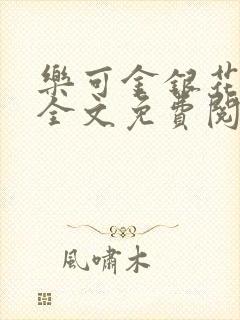 樂可金銀花
全文免費閱
風嘯木